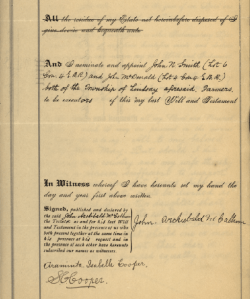 All the residue of my Estate not hereinbefore disposed of I
give devise and bequeath unto
And I nominate and appoint John N. Smith (Lot 6
Con 4 E.B.R.) and John McDonald (Lot 4 Con 4 E.B.R.)
both of the Township of Lindsay aforesaid, Farmers,
to be executors of this my last Will and Testament
In Witness whereof I have hereunto set my hand the day
and year first above written
Signed, published and declared by
the said John Archibald McCallum
the Testator as and for his last Will
and Testament in the presence of us who
both present together at the same time in
his presence at his request and in
the presence of each other have hereunto
subscribed our names as witnesses.
John Archibald McCallum
Araminta Isabella Cooper
S C Cooper.